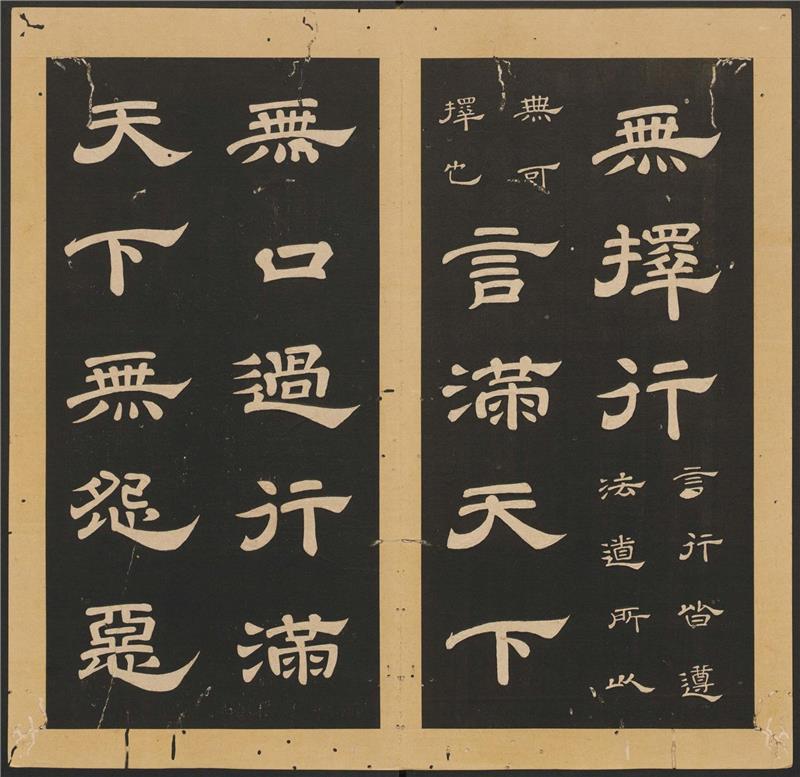 無擇行言行皆遵法道所以
無可擇也言滿天下
無口過行滿
天下無怨惡